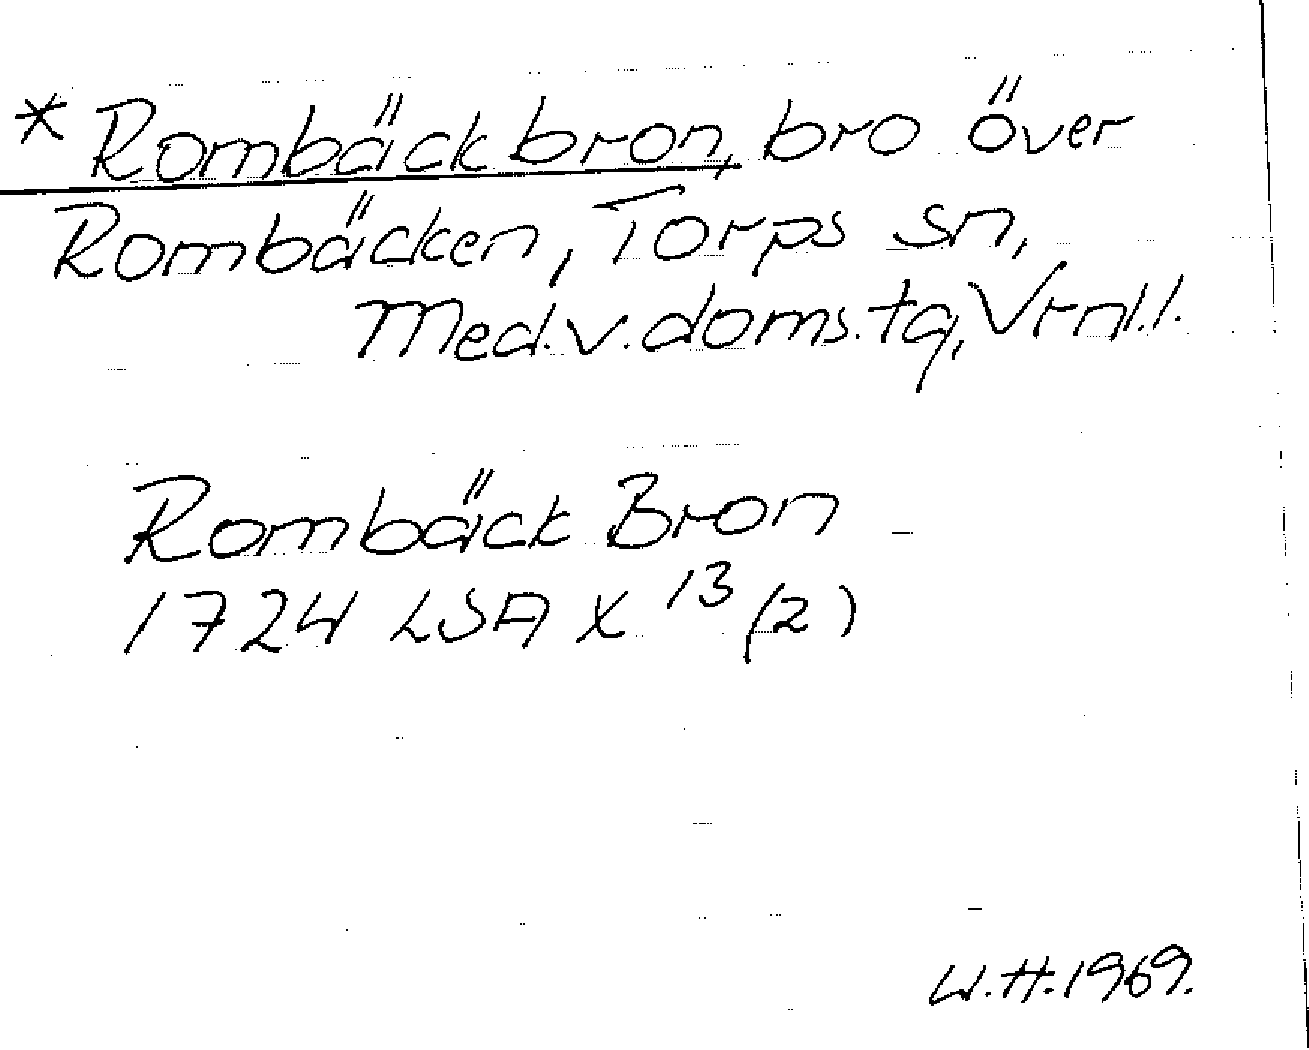 * Rombäckbron, bro över
Rombäcken, Torps sn,
Med.v.doms.tg, Vrnl.l.
Rombäck Bron
1724 LSA X 13 (2)
W.H.1969.